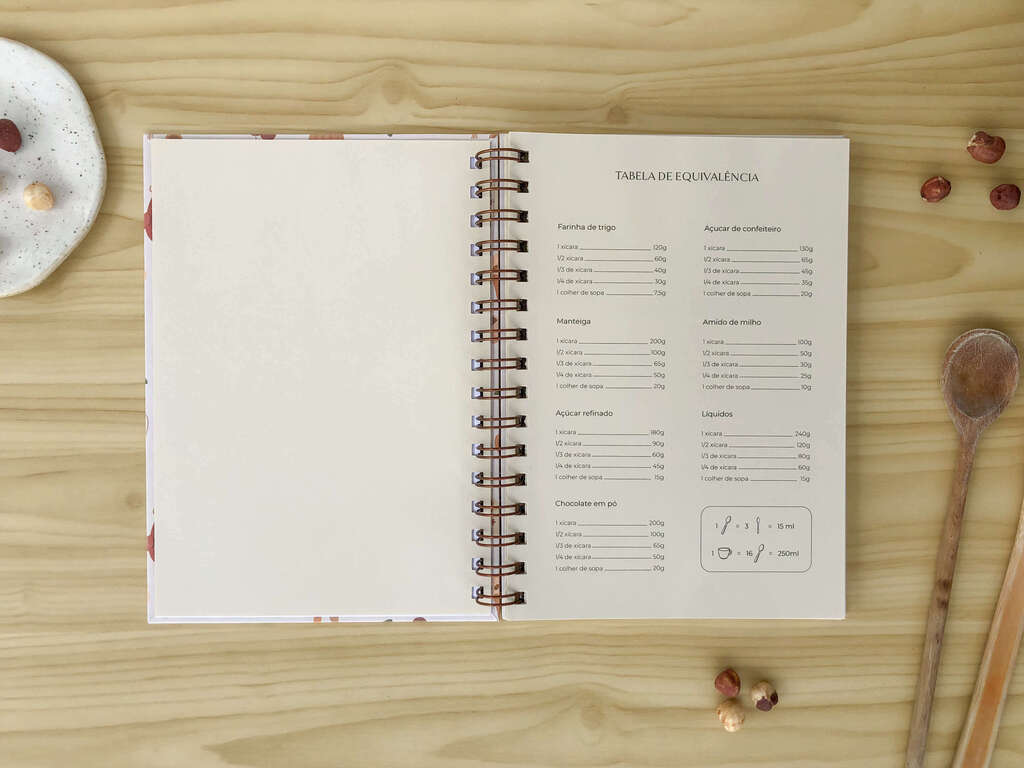 TABELA DE EQUIVALÊNCIA
Farinha de trigo
1 xícara 120g
1/2 xícara 60g
1/3 de xícara 40g
1/4 de xícara 30g
1 colher de sopa 7,5g
Manteiga
1 xícara 200g
1/2 xícara 100g
1/3 de xícara 65g
1/4 de xícara 50g
1 colher de sopa 20g
Açúcar refinado
1 xícara 180g
1/2 xícara 90g
1/3 de xícara 60g
1/4 de xícara 45g
1 colher de sopa 15g
Chocolate em pó
1 xícara 200g
1/2 xícara 100g
1/3 de xícara 65g
1/4 de xícara 50g
1 colher de sopa 20g
Açucar de confeiteiro
1 xícara 130g
1/2 xícara 65g
1/3 de xícara 45g
1/4 de xícara 35g
1 colher de sopa 20g
Amido de milho
1 xícara 100g
1/2 xícara 50g
1/3 de xícara 30g
1/4 de xícara 25g
1 colher de sopa 10g
Líquidos
1 xícara 240g
1/2 xícara 120g
1/3 de xícara 80g
1/4 de xícara 60g
1 colher de sopa 15g
1 = 3 = 15 ml
1 = 16 = 250ml